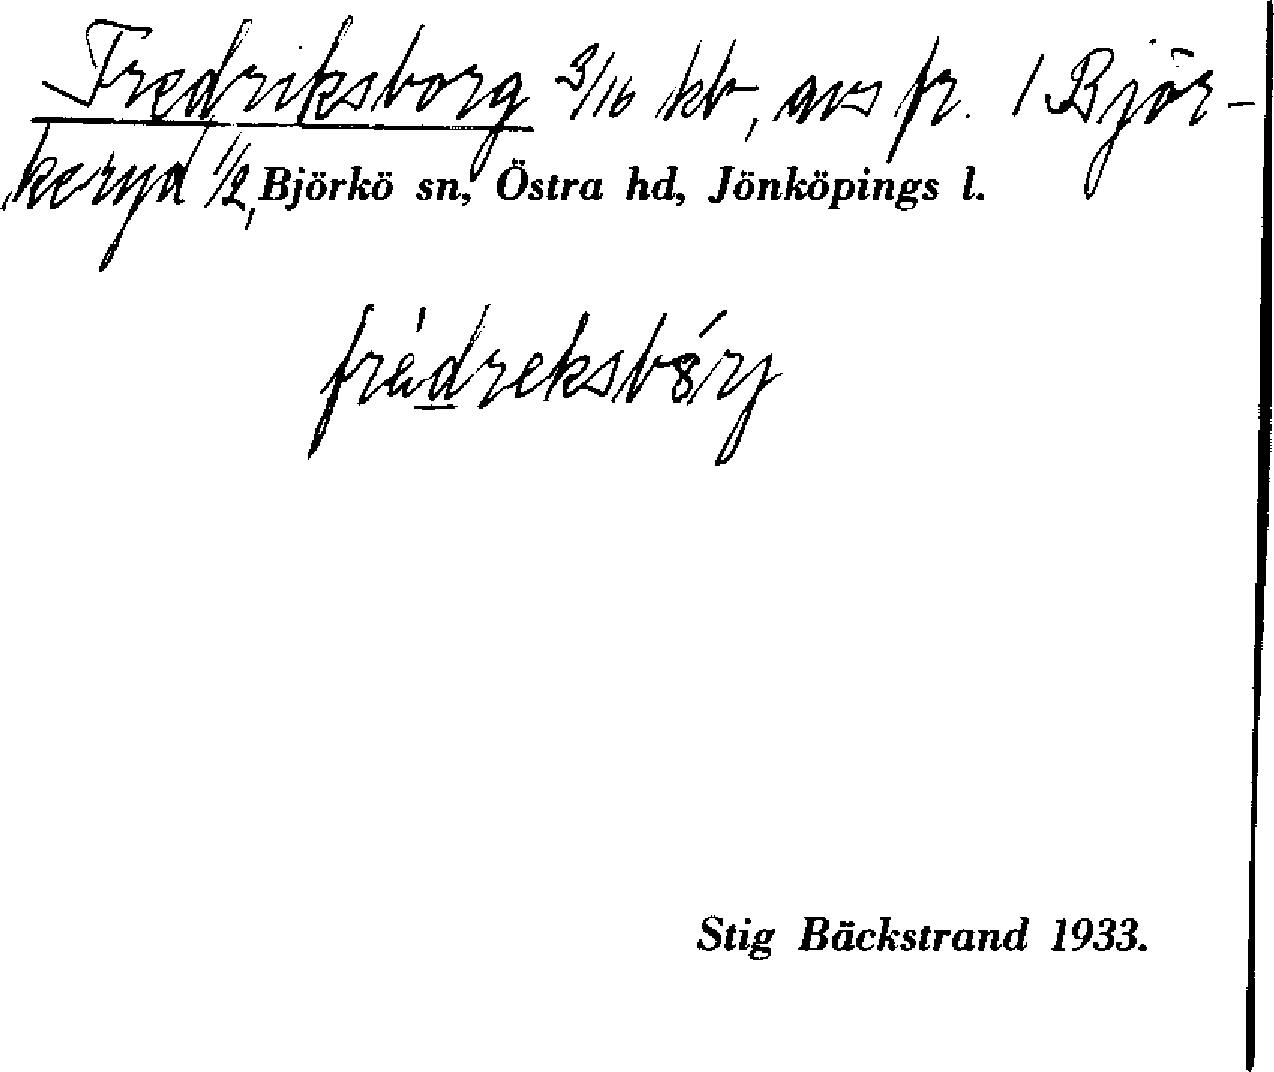 Fredriksborg 3/16 kb, avs fr. 1 Björ-
keryd 1/2, Björkö sn, Östra hd, Jönköpings l.
Stig Bäckstrand 1933.